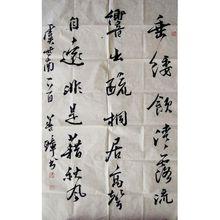 垂緌飲清露流
響出疏桐居高聲
自遠非是藉秋風
虞世南 書